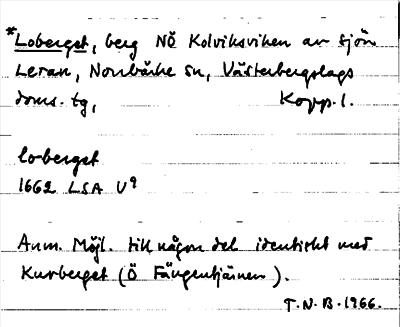 *Loberget, berg NÖ Kolviksviken av sjön
Leran, Norrbärke sn, Västerbergslags
doms. tg, Kopp. l.
loberget
1662 LSA U9
Anm. Möjl. till någon del identiskt med
Kurberget (Ö Fängentjärnen).
T.N.B. 1966.